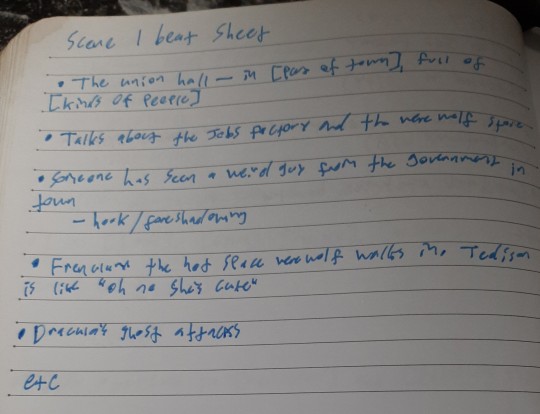 Scene 1 beat sheet
• The union hall — in [part of town], full of
[kinds of people]
• Talks about the Jobs factory and the werewolf space
• Someone has seen a weird guy from the government in
town
— hook/foreshadowing
• the hot space werewolf walks in. Tedison
is like "oh no she's cute"
• Dracula's ghost attacks
etc